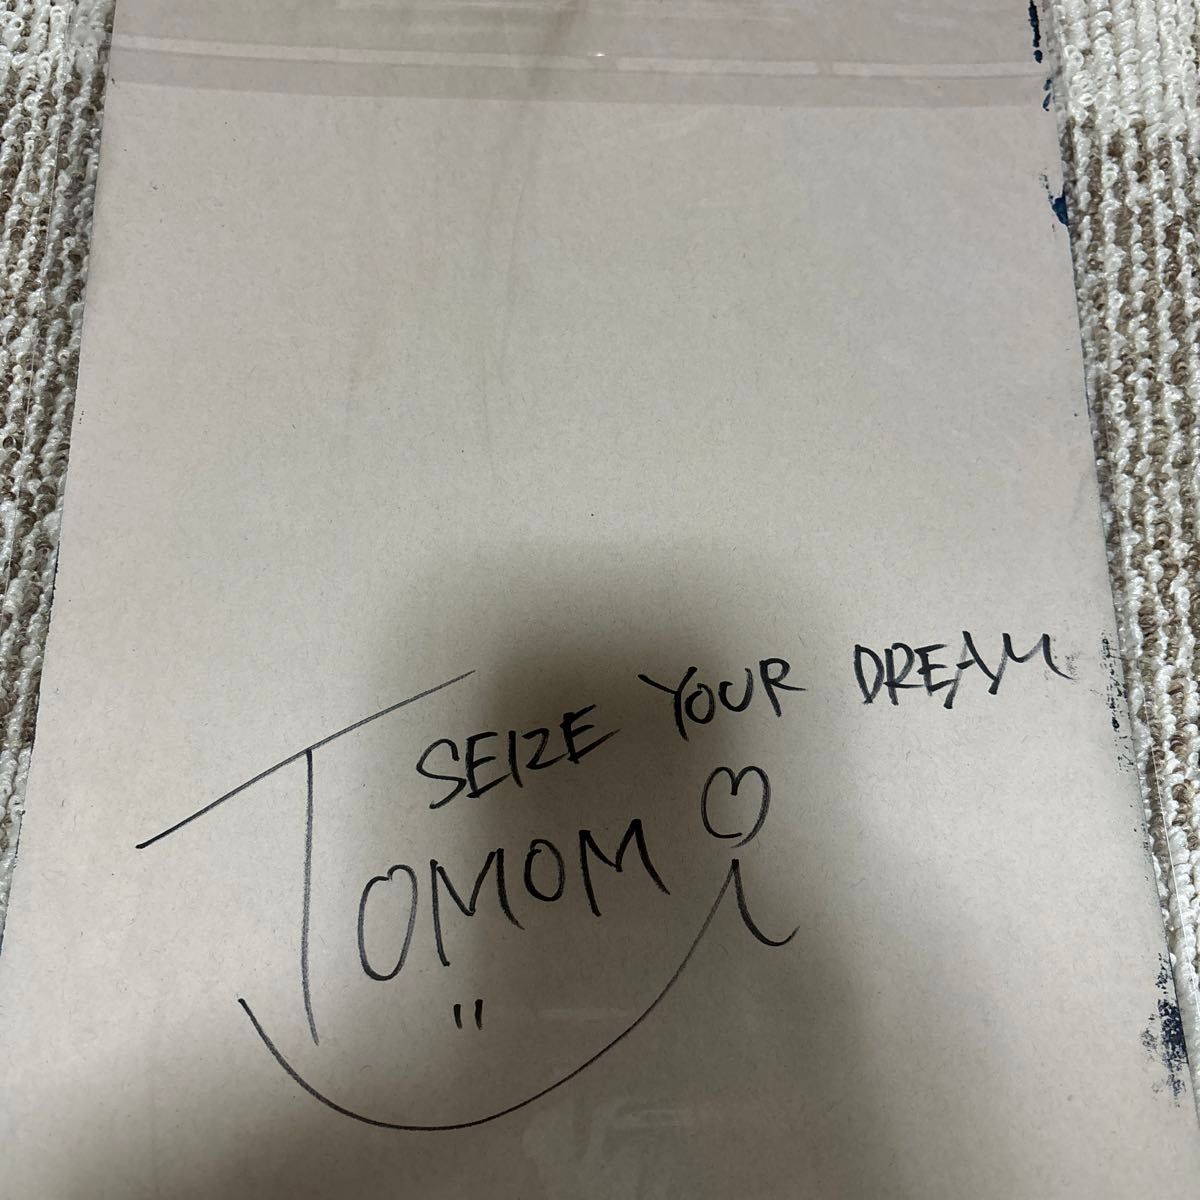 SEIZE YOUR DREAM
TOMOMi